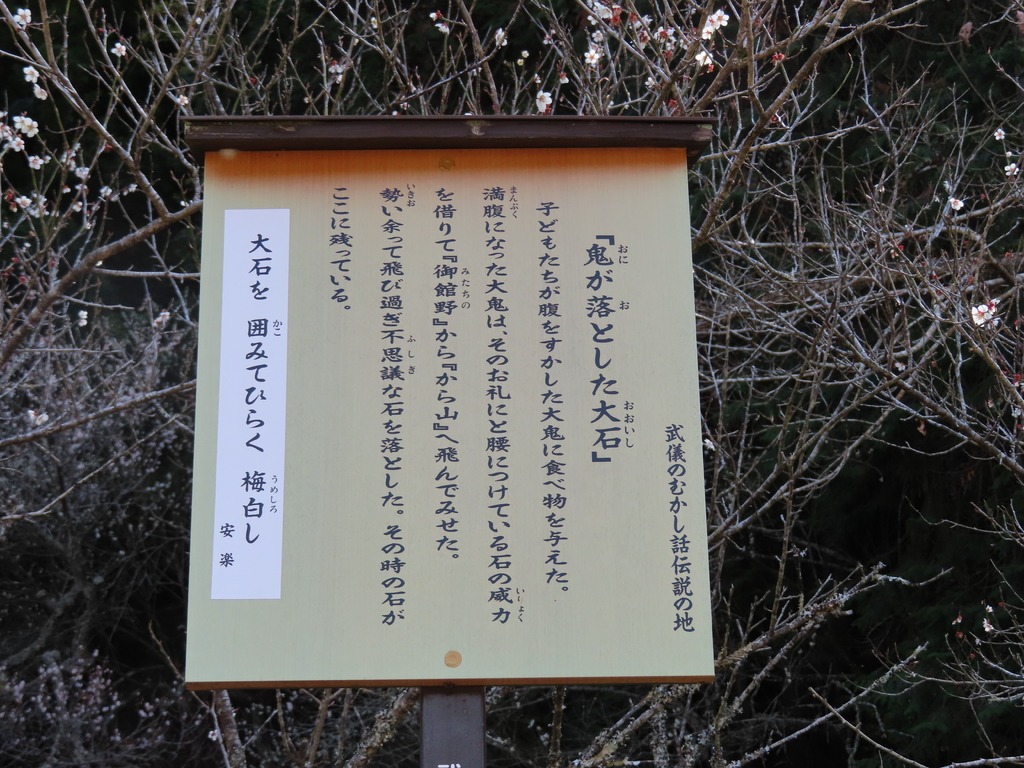 武儀のむかし話伝説の地
『鬼が落とした大石』
子どもたちが腹をすかした大鬼に食べ物を与えた。
満腹になった大鬼は、そのお礼にと腰につけている石の威力
を借りて『御館野』から『から山』へ飛んでみせた。
勢い余って飛び過ぎ不思議な石を落とした。その時の石が
ここに残っている。
大石を 囲みてひらく 梅白し
安楽